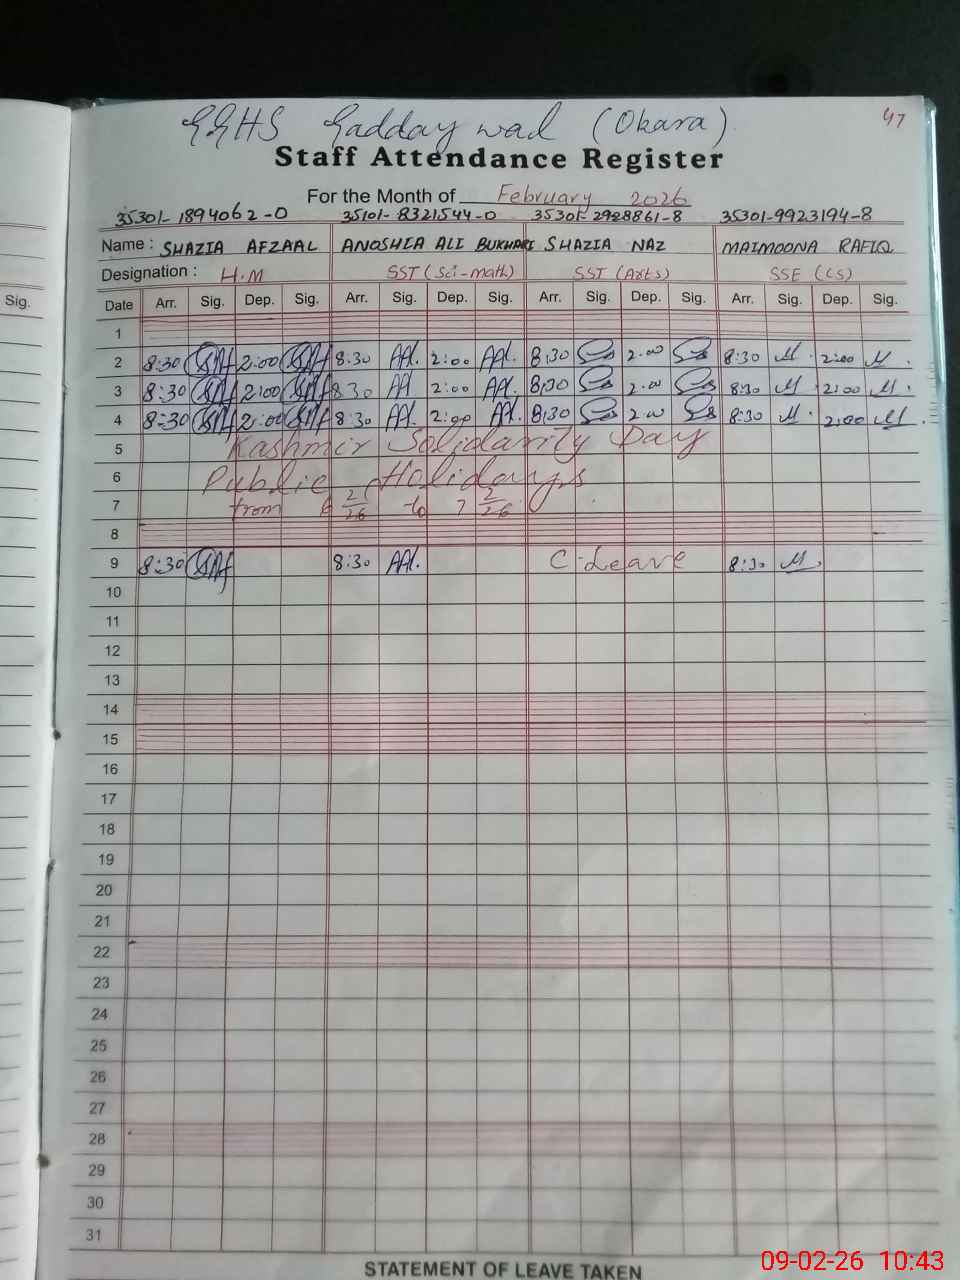 GGHS Gadday wal (Okara)
47
Staff Attendance Register
For the Month of February 2026
35301-1894062-0 35101-8321544-0 35301-2928861-8 35301-9923194-8
Name : SHAZIA AFZAAL ANOSHIA ALI BUKHARI SHAZIA NAZ MAIMOONA RAFIQ
Designation : H.M SST (Sci-math) SST (Arts) SSE (CS)
Sig.
Date Arr. Sig. Dep. Sig. Arr. Sig. Dep. Sig. Arr. Sig. Dep. Sig. Arr. Sig. Dep. Sig.
1
2 8:30 2:00 8:30 2:00 8:30 2.00 8:30 2:00
3 8:30 2:00 8:30 2:00 8:30 2.00 8:30 2:00
4 8:30 2:00 8:30 2:00 8:30 2.00 8:30 2:00
5 Kashmir Solidarity Day
6 Public Holidays
7 from 6 2/26 to 7 2/26
8
9 8:30 8:30 C-Leave 8:30
10
11
12
13
14
15
16
17
18
19
20
21
22
23
24
25
26
27
28
29
30
31
STATEMENT OF LEAVE TAKEN
09-02-26 10:43